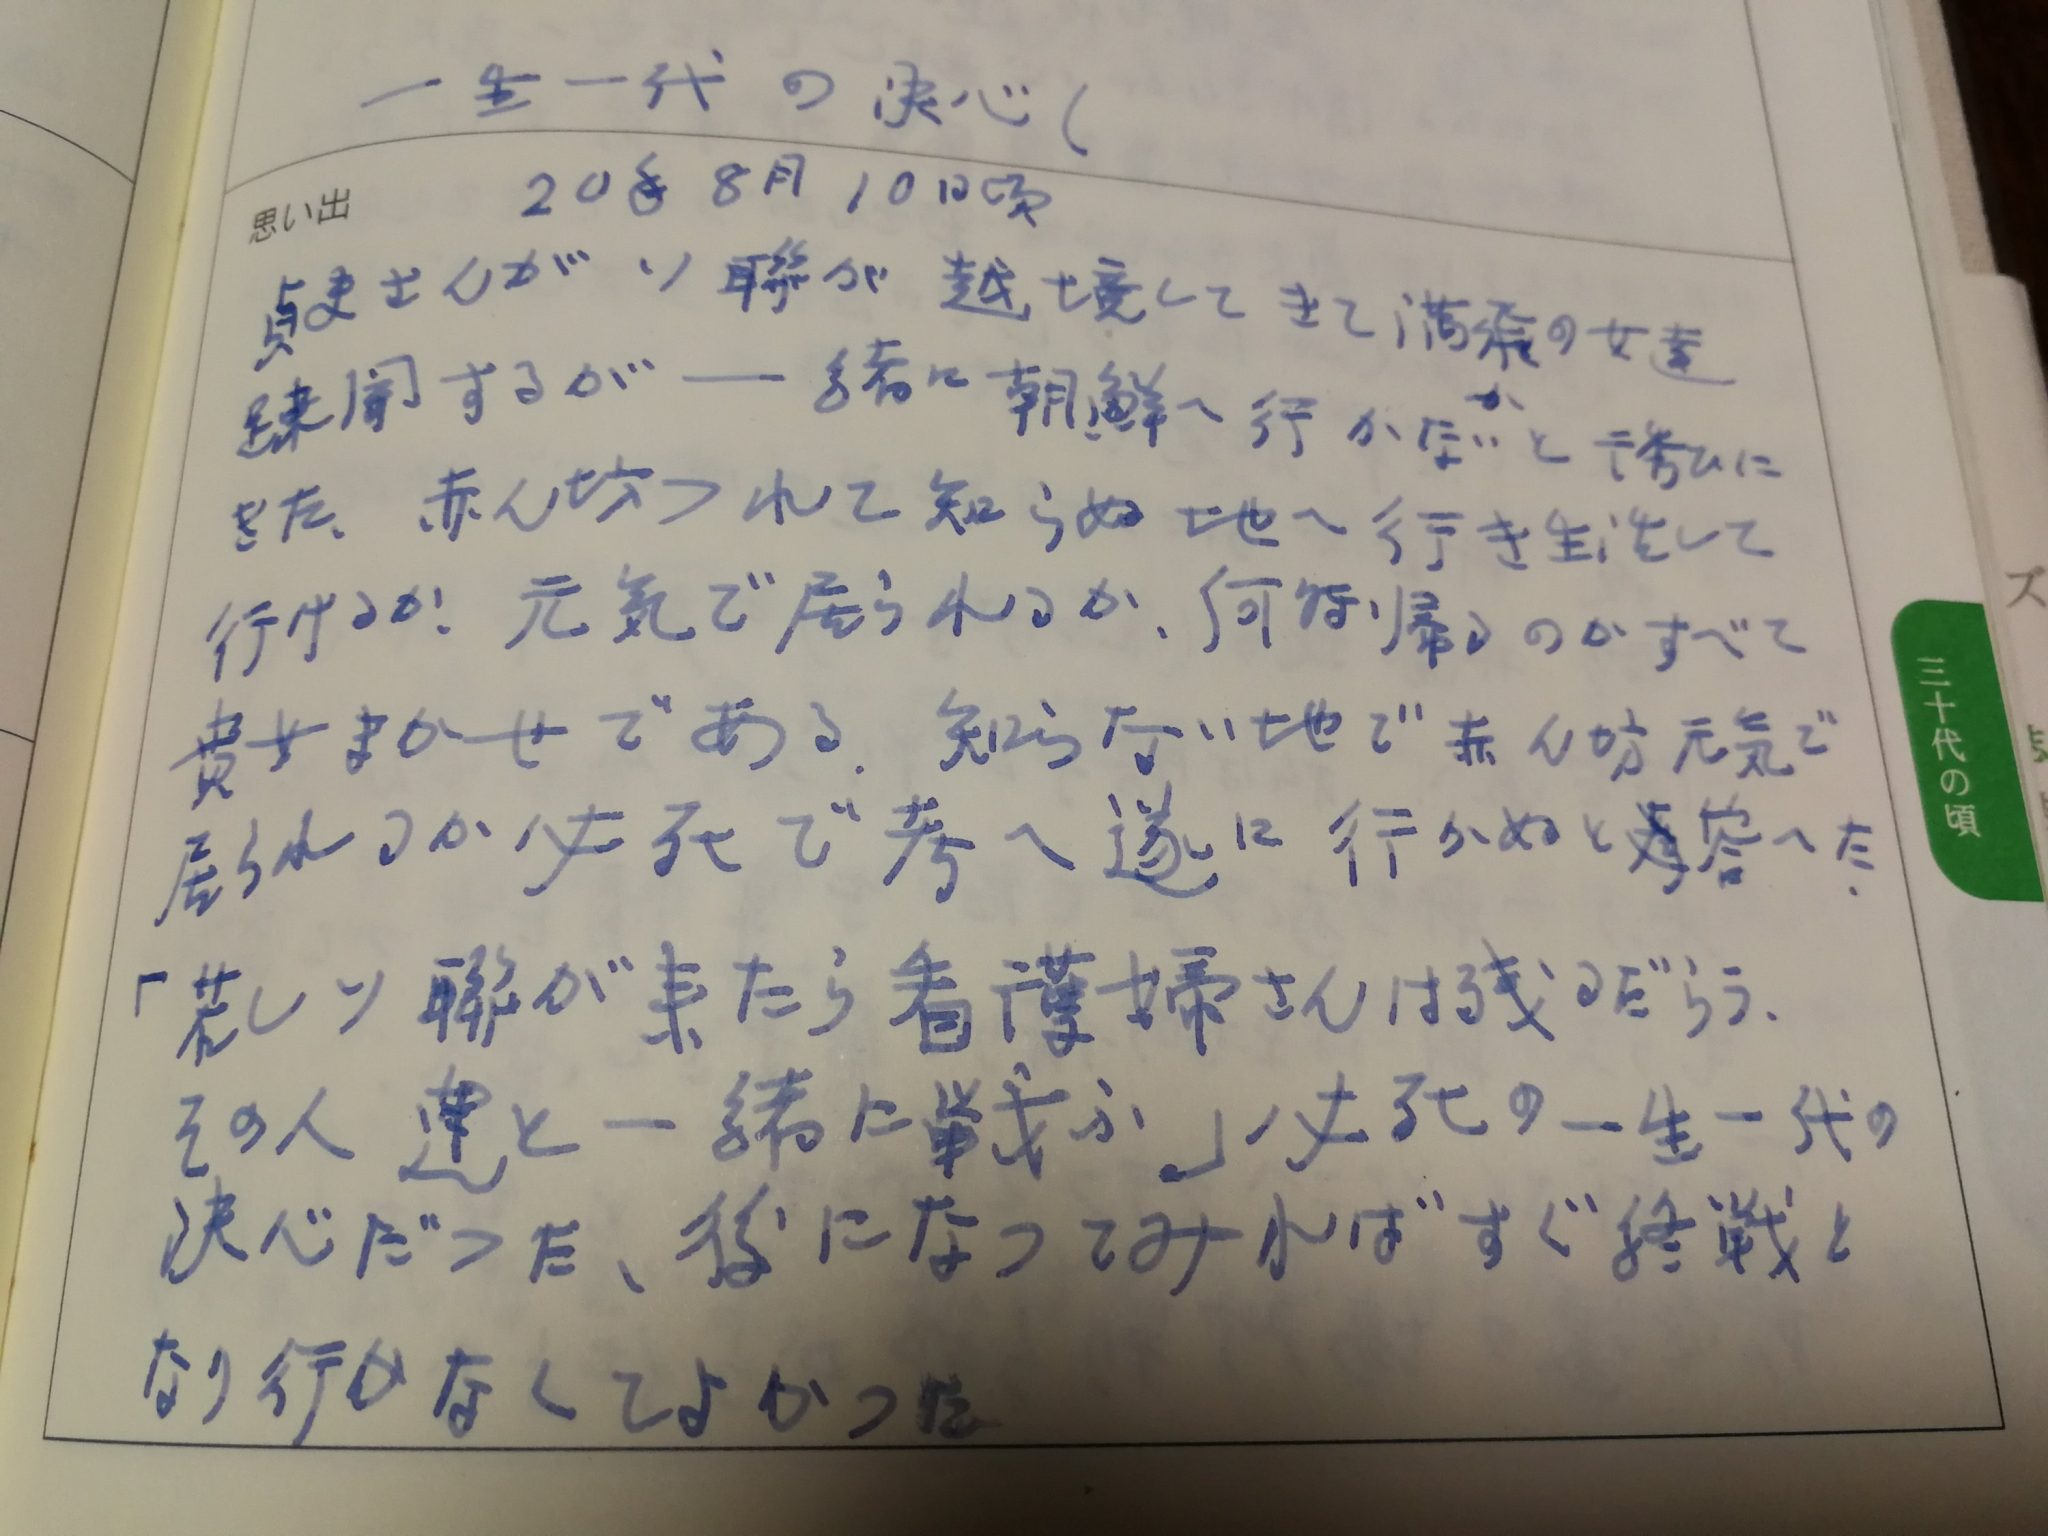 一生一代の決心(
思い出
20年8月10日頃
貞吏さんがソ聯が越境してきて満飛の女達
疎開するが一緒に朝鮮へ行かないかと誘ひに
きた、赤ん坊つれて知らぬ地へ行き生活して
行けるか、元気で居られるか、何時帰るのかすべて
貴女まかせである。知らない地で赤ん坊元気で
居られるか必死で考へ遂に行かぬと答へた.
「若しソ聯が来たら看護婦さんは残るだらう、
その人達と一緒に戦ふ」必死の一生一代の
決心だつた、後になつてみればすぐ終戦と
なり行かなくてよかつた
三十代の頃
ズ